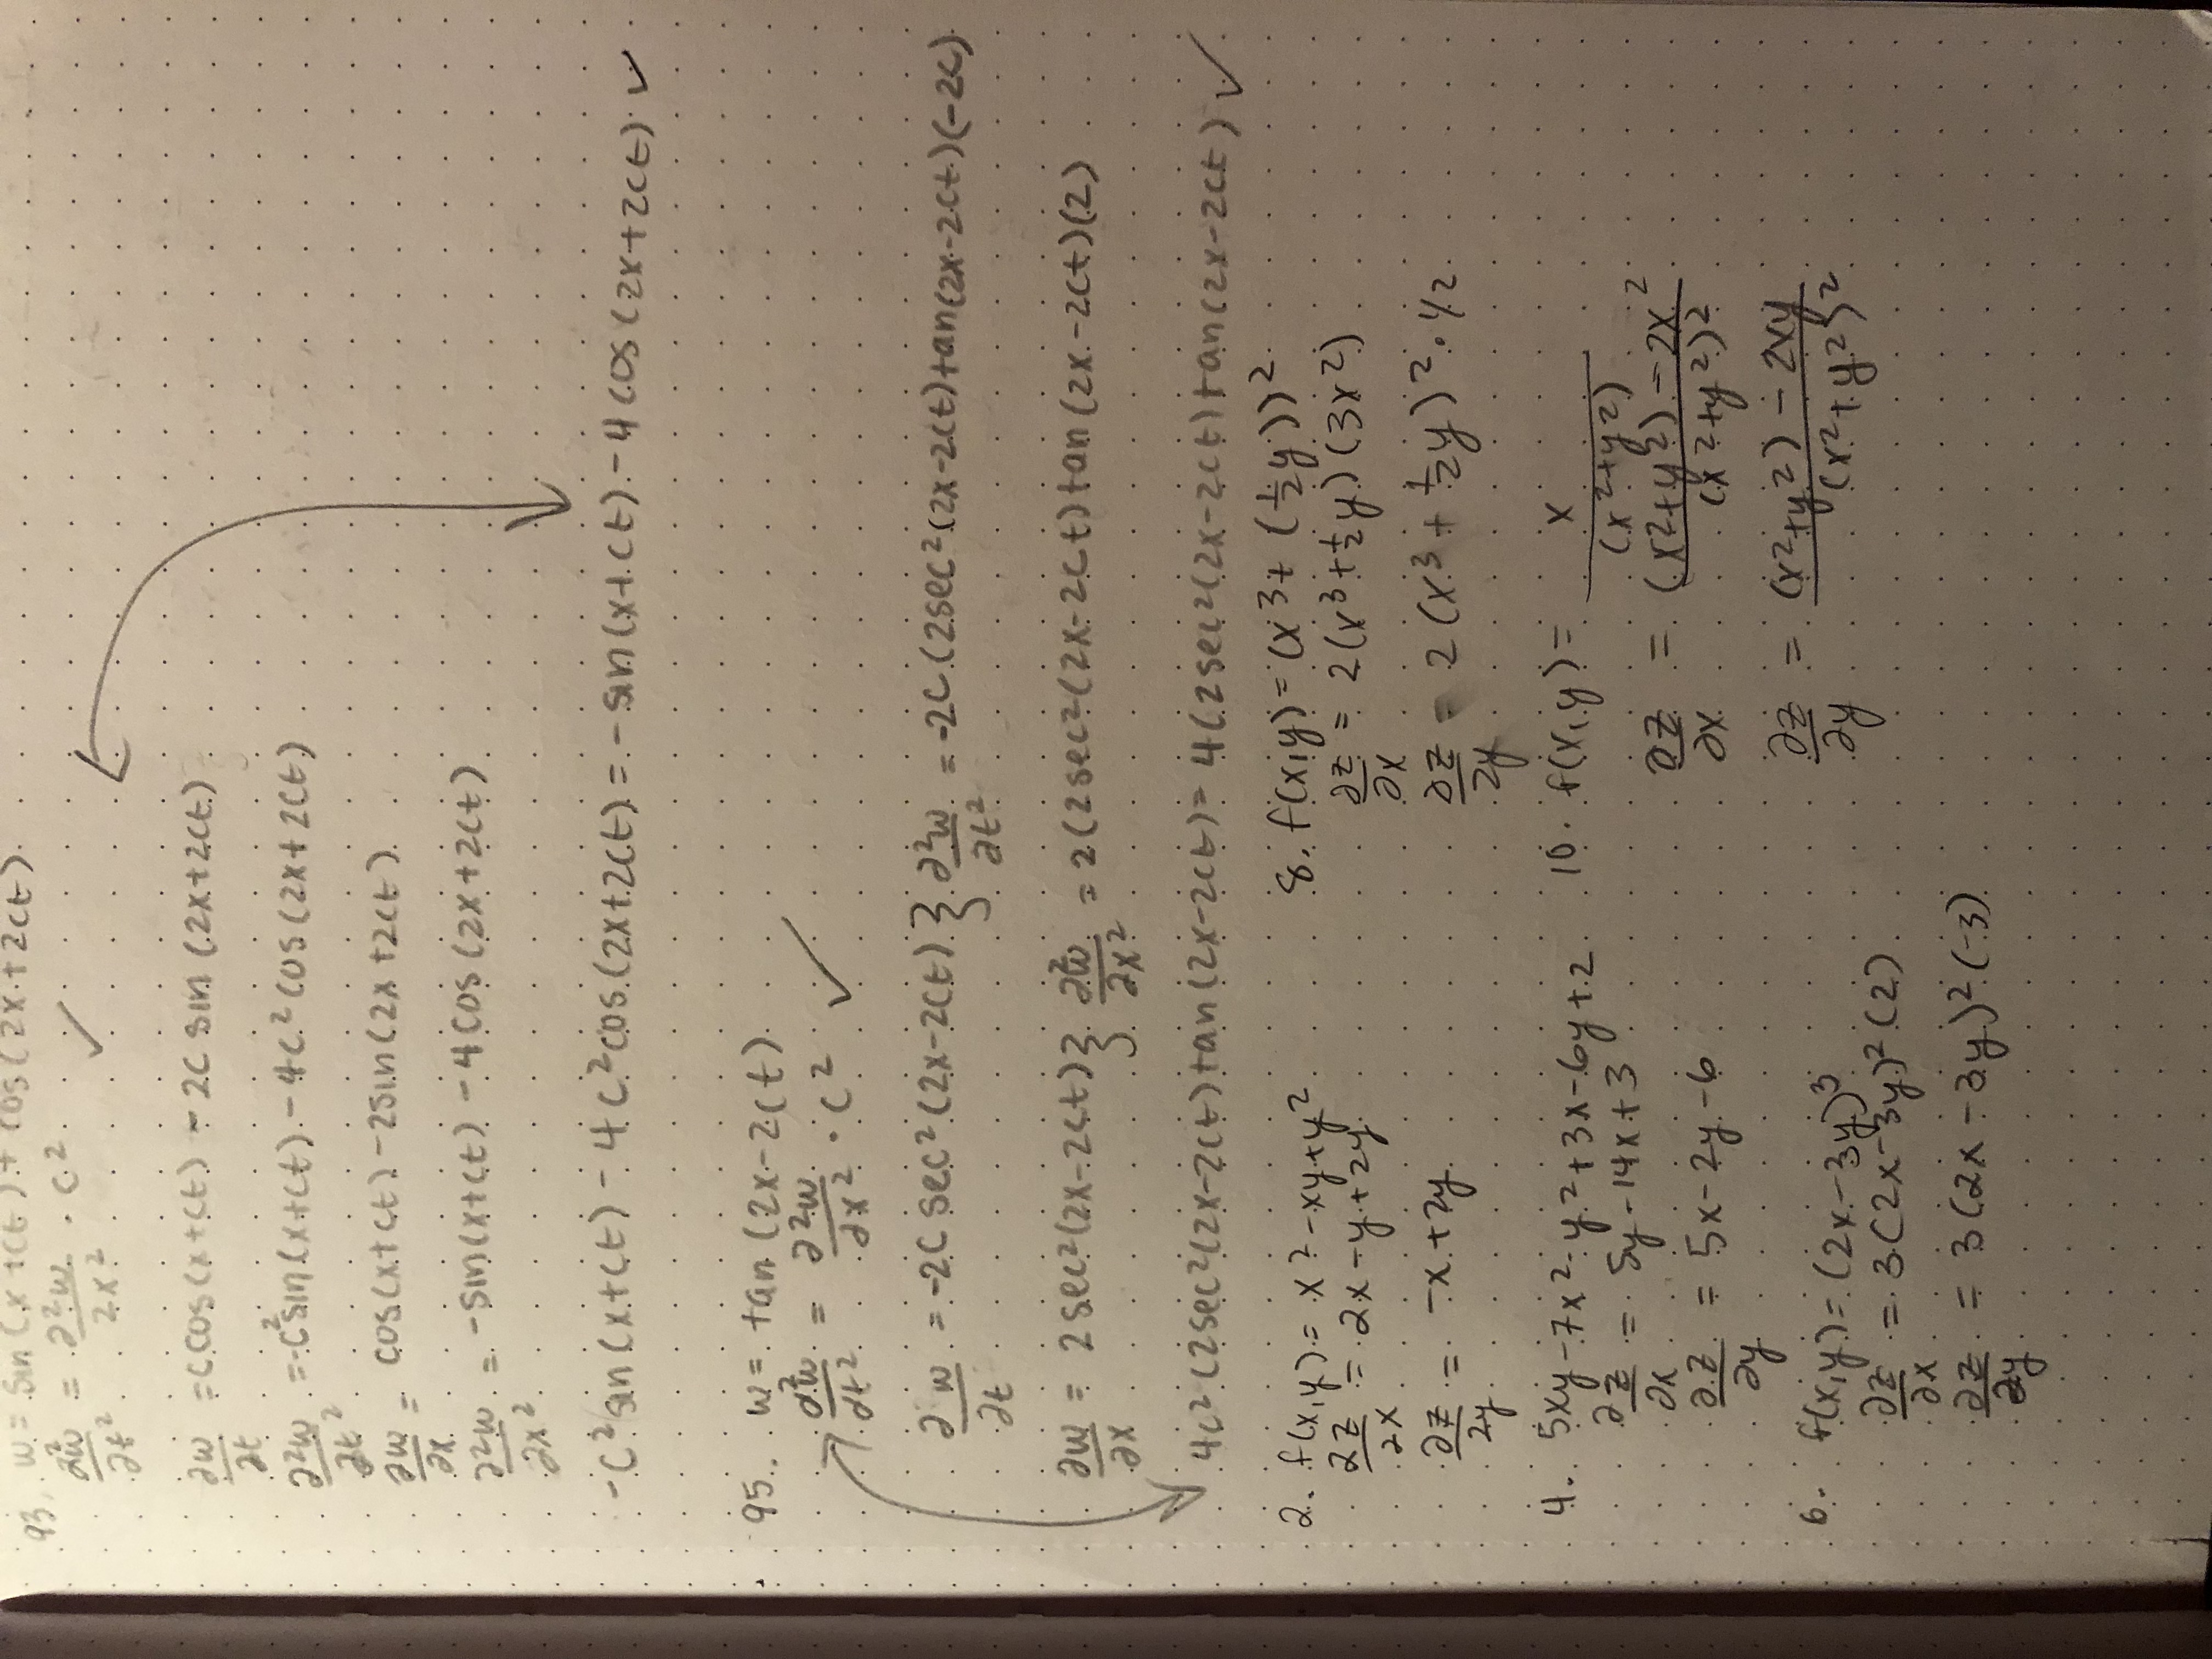 93. w = sin(x+ct) + cos(2x+2ct)
∂²w/∂t² = ∂²w/2x² · c² ✓
∂w/∂t = c cos(x+ct) - 2c sin(2x+2ct)
∂²w/∂t² = -c² sin(x+ct) - 4c² cos(2x+2ct)
∂w/∂x = cos(x+ct) - 2sin(2x+2ct)
∂²w/∂x² = -sin(x+ct) - 4cos(2x+2ct)
-c² sin(x+ct) - 4c² cos(2x+2ct) = -sin(x+ct) - 4cos(2x+2ct) ✓
95. w = tan(2x-2ct)
∂²w/∂t² = ∂²w/∂x² · c² ✓
∂w/∂t = -2c sec²(2x-2ct) } ∂²w/∂t² = -2c(2sec²(2x-2ct)tan(2x-2ct)(-2c)
∂w/∂x = 2sec²(2x-2ct) } ∂²w/∂x² = 2(2sec²(2x-2ct)tan(2x-2ct)(2)
4c²(2sec²(2x-2ct)tan(2x-2ct) = 4(2sec²(2x-2ct)tan(2x-2ct) ✓
2. f(x,y) = x²-xy+y²
∂z/∂x = 2x-y+2y
∂z/∂y = -x+2y
4. 5xy-7x²-y²+3x-6y+2
∂z/∂x = 5y-14x+3
∂z/∂y = 5x-2y-6
6. f(x,y) = (2x-3y)³
∂z/∂x = 3(2x-3y)²(2)
∂z/∂y = 3(2x-3y)²(-3)
8. f(x,y) = (x³+(1/2y))²
∂z/∂x = 2(x³+1/2y)(3x²)
∂z/∂y = 2(x³+1/2y)²·1/2
10. f(x,y) = x/(x²+y²)
∂z/∂x = (x²+y²)-2x²/(x²+y²)²
∂z/∂y = (x²+y²)-2xy/(x²+y²)²